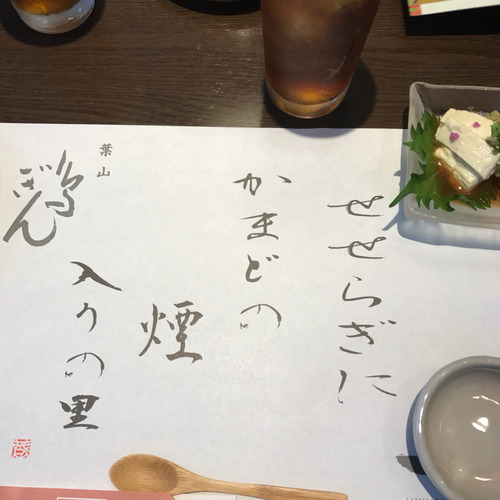 せせらぎに
かまどの
煙
入りの里
葉山
ぎん